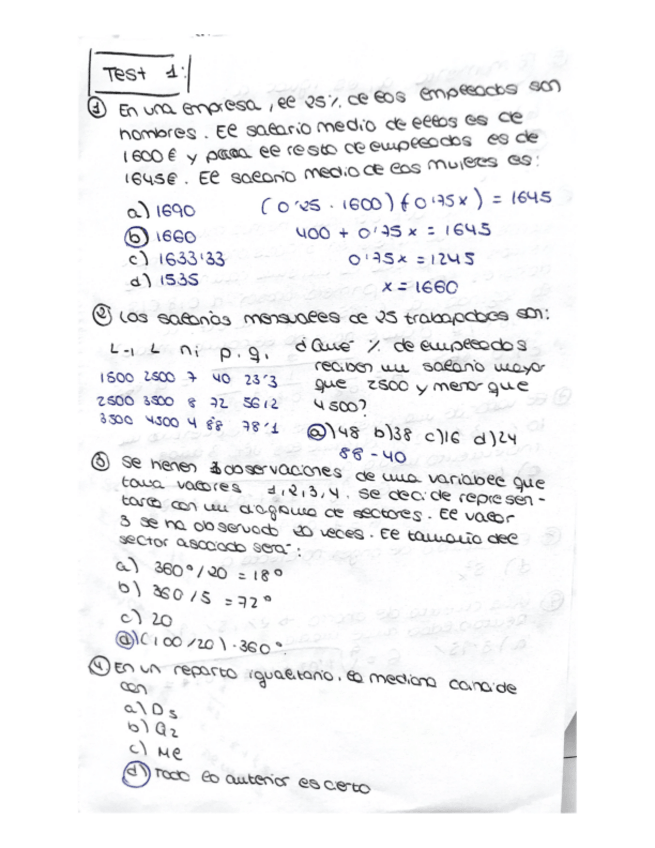 Test 1:
① En una empresa, el 25% de los empleados son
hombres. El salario medio de ellos es de
1600€ y para el resto de empleados es de
1645€. El salario medio de las mujeres es:
a) 1690 (0'25 · 1600) + (0'75x) = 1645
b) 1660 400 + 0'75x = 1645
c) 1633'33 0'75x = 1245
d) 1535 x = 1660
② Los salarios mensuales de 25 trabajadores son:
L-1 L ni p. q. ¿Qué % de empleados
1600 2500 7 40 23'3 reciben un salario mayor
2500 3500 8 72 56'2 que 2500 y menor que
3500 4500 4 88 78'1 4500?
a) 48 b) 38 c) 16 d) 24
88 - 40
③ Se tienen observaciones de una variable que
toma valores 1, 2, 3, 4. Se decide represen-
tarlo con un diagrama de sectores. El valor
3 se ha observado 20 veces. El tamaño del
sector asociado será:
a) 360°/20 = 18°
b) 360/5 = 72°
c) 20
d) (100/20) · 360°
④ En un reparto igualitario, la mediana coincide
con
a) D5
b) Q2
c) Me
d) Todo lo anterior es cierto